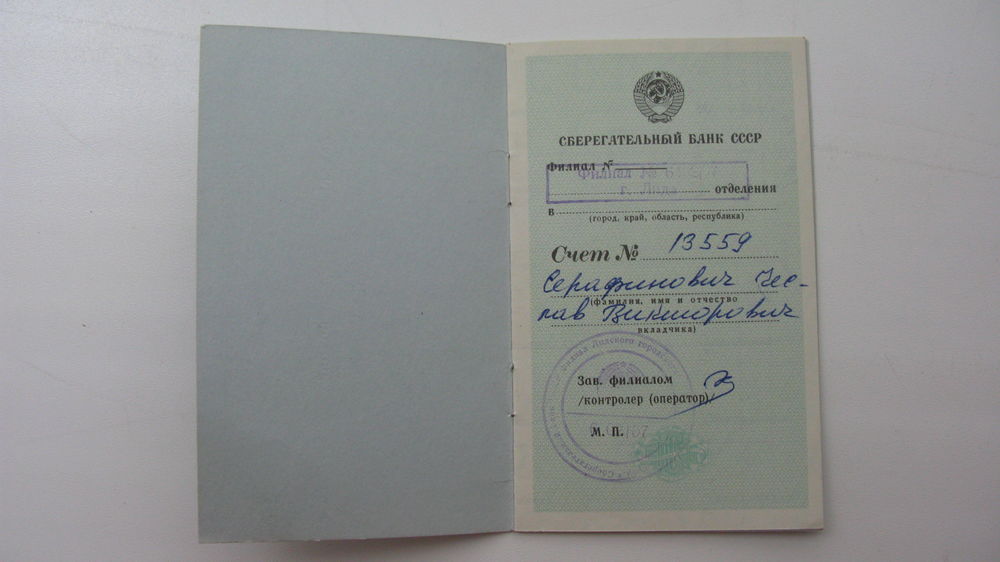 СБЕРЕГАТЕЛЬНЫЙ БАНК СССР
Филиал №
Филиал №
г. Лида
отделения
в
(город, край, область, республика)
Счет № 13559
Серафинович Чес-
(фамилия, имя и отчество
лав Викторович
вкладчика)
Филиал Лидского
Зав. филиалом
/контролер (оператор)/
М. П.